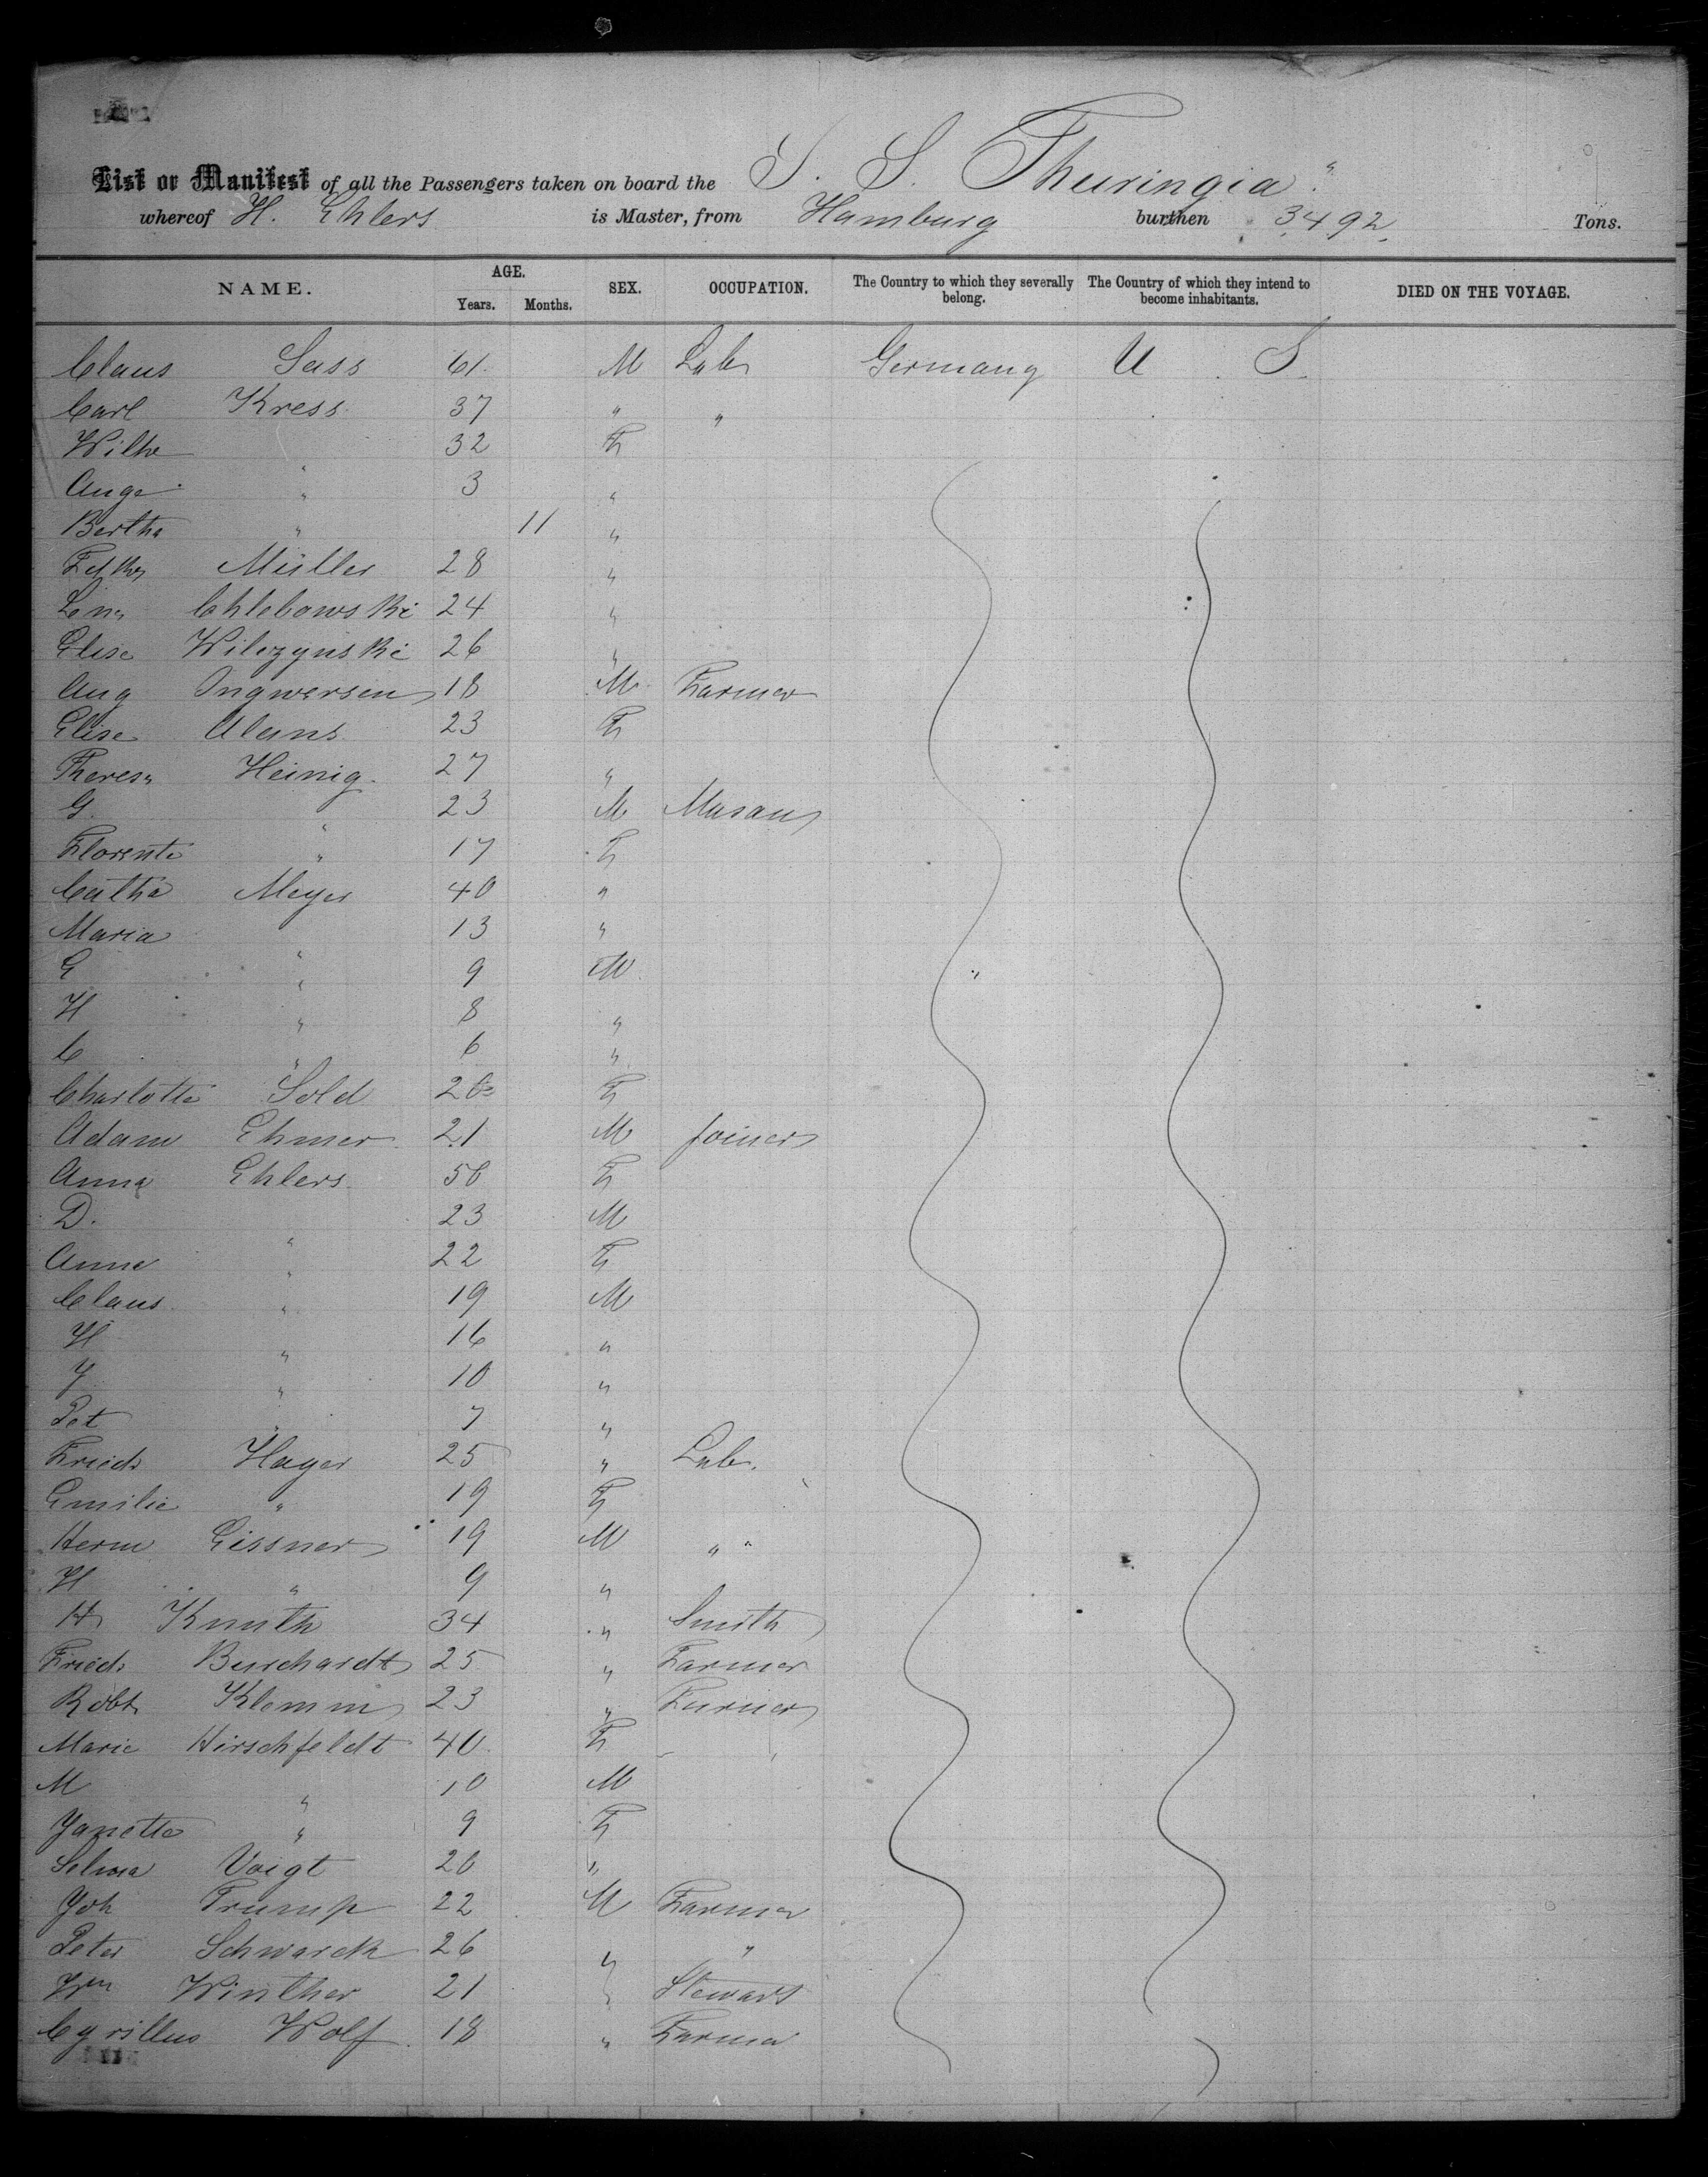 List or Manifest of all the Passengers taken on board the S. S. Thuringia "
whereof H. Ehlers is Master, from Hamburg burthen 3492 Tons.
NAME. AGE. Years. Months. SEX. OCCUPATION. The Country to which they severally belong. The Country of which they intend to become inhabitants. DIED ON THE VOYAGE.
Claus Sass 61 M Lab Germany U S
Carl Kress 37 " "
Wilhe 32 F
Auge " 3 "
Bertha " 11 "
Müller 28 "
Lina Chlebowski 24 "
Elise Wilczynski 26 "
Aug Ingwersen 18 M Farmer
Elise Alans 23 F
Theresa Heinig 27 "
G. " 23 M Mason
Florenti " 17 F
Catha Meyer 40 "
Maria " 13 "
G " 9 M
H " 8 "
C " 6 "
Charlotte Sold F
Adam Ehmer 21 M Joiner
Anna Ehlers 50 F
D. " 23 M
Anna " 22 F
Claus " 19 M
H " 16 "
J " 10 "
Pet " 7 "
Friedr Hager 25 " Lab.
Emilie " 19 F
Herm Eissner 19 M "
H " 9 "
H Knuth 34 " Smith
Friedr Burchardt 25 " Farmer
Robt Klemm 23 " Turner
Marie Hirschfeldt 40 F
M " 10 M
Janette " 9 F
Selma Voigt 20 "
Joh Trump 22 M Farmer
Peter Schwarck 26 " "
Wm Winther 21 " Stewart
Cyrillus Wolf 18 " Farmer